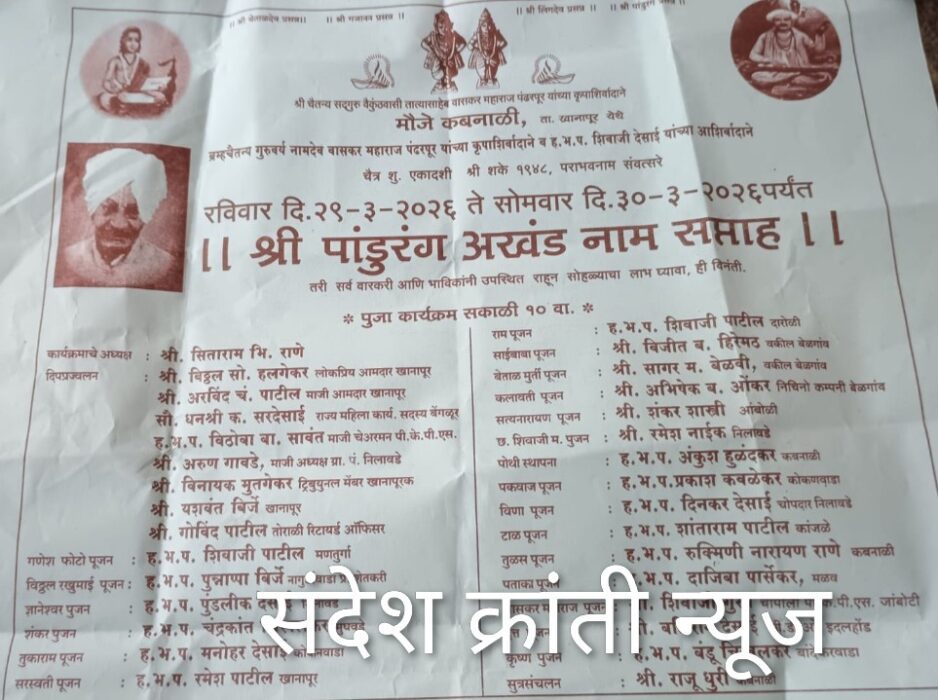 ।। श्री वेताळदेव प्रसन्न।।
।। श्री गजानन प्रसन्न ।।
।। श्री लिंगदेव प्रसन्न ।।
।। श्री पांडुरंग प्रसन्न ।।
श्री चैतन्य सद्गुरु वैकुंठवासी तात्यासाहेब वासकर महाराज पंढरपूर यांच्या कृपाशिर्वादाने
मौजे कबनाळी, ता. खानापूर येथे
ब्रम्हचैतन्य गुरुवर्य नामदेव बासकर महाराज पंढरपूर यांच्या कृपाशिर्वादाने व ह.भ.प. शिवाजी देसाई यांच्या आशिर्वादाने
चैत्र शु. एकादशी श्री शके १९४८, पराभवनाम संवत्सरे
रविवार दि.२९-३-२०२६ ते सोमवार दि.३०-३-२०२६पर्यंत
।। श्री पांडुरंग अखंड नाम सप्ताह ।।
तरी सर्व वारकरी आणि भाविकांनी उपस्थित राहून सोहळ्याचा लाभ घ्यावा, ही विनंती.
* पुजा कार्यक्रम सकाळी १० वा. *
कार्यक्रमाचे अध्यक्ष : श्री. सिताराम भि. राणे
दिपप्रज्वलन : श्री. विठ्ठल सो. हलगेकर लोकप्रिय आमदार खानापूर
श्री. अरविंद चं. पाटील माजी आमदार खानापूर
सौ. धनश्री क. सरदेसाई राज्य महिला कार्य. सदस्य बेंगळूर
ह.भ.प. विठोबा बा. सावंत माजी चेअरमन पी.के.पी.एस.
श्री. अरुण गावडे, माजी अध्यक्ष ग्रा. पं. निलावडे
श्री. विनायक मुतगेकर ट्रिबुयुनल मेंबर खानापूरक
श्री. यशवंत बिर्जे खानापूर
श्री. गोविंद पाटील तोराळी रिटायर्ड ऑफिसर
गणेश फोटो पूजन : ह.भ.प. शिवाजी पाटील मणतुर्गा
विठ्ठल रखुमाई पूजन : ह.भ.प. पुन्नाप्पा बिर्जे
ज्ञानेश्वर पुजन : ह.भ.प. पुंडलीक देसाई
शंकर पुजन : ह.भ.प. चंद्रकांत
तुकाराम पूजन : ह.भ.प. मनोहर देसाई
सरस्वती पूजन : ह.भ.प. रमेश पाटील खानापूर
राम पूजन : ह.भ.प. शिवाजी पाटील दारोळी
साईबाबा पूजन : श्री. विजीत ब. हिरेमठ वकील बेळगांव
बेताळ मुर्ती पूजन : श्री. सागर म. बेळवी, वकील बेळगांव
कलावती पूजन : श्री. अभिषेक ब. ओंकर निचिनो कम्पनी बेळगांव
सत्यनारायण पूजन : श्री. शंकर शास्त्री आंबोळी
छ. शिवाजी म. पुजन : श्री. रमेश नाईक निलावडे
पोथी स्थापना : ह.भ.प. अंकुश हुळंदकर कबनाळी
पकवाज पूजन : ह.भ.प.प्रकाश कवळेकर कोकणवाडा
विणा पूजन : ह.भ.प. दिनकर देसाई चोपदार निलावडे
टाळ पूजन : ह.भ.प. शांताराम पाटील कांजळे
तुळस पूजन : ह.भ.प. रुक्मिणी नारायण राणे कबनाळी
पताका पूजन : ह.भ.प. दाजिबा पार्सेकर, मळव
महाराज पूजन : शिवाजी पी.एस. जांबोटी
इदलहोंड
कृष्ण पुजन : ह.भ.प. बंडू
सुत्रसंचलन : श्री. राजू धुरी कबनाळी
संदेश क्रांती न्यूज